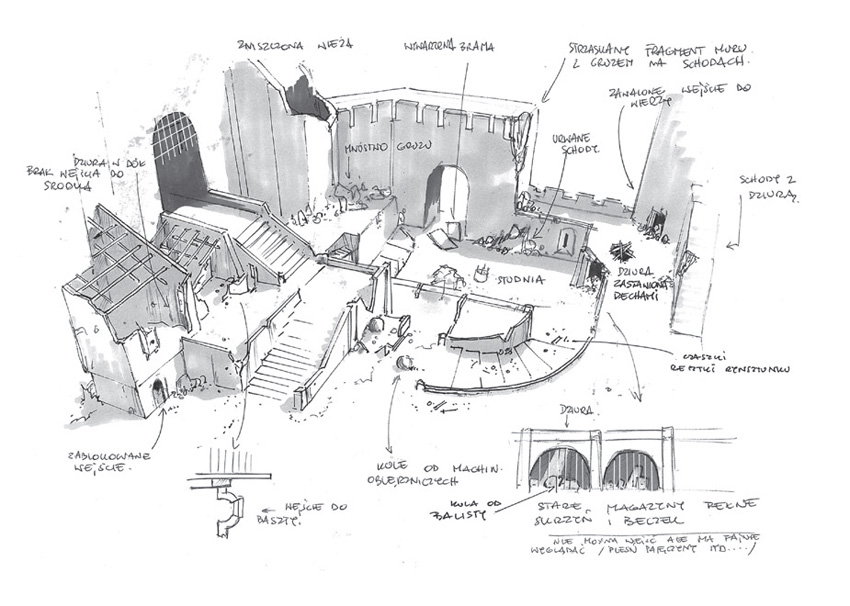 ZNISZCZONA WIEŻA
WYWARZONA BRAMA
STRZASKANY FRAGMENT MURU
Z GRUZEM NA SCHODACH.
ZAWALONE WEJŚCIE DO
WIERZY
URWANE
SCHODY
MNÓSTWO GRUZU
DZIURA W DÓŁ
BRAK WEJŚCIA DO
ŚRODKA
SCHODY Z
DZIURĄ
STUDNIA
DZIURA
ZASŁONIONA
DECHAMI
CZASZKI
RESZTKI RYNSZTUNKU
DZIURA
ZABLOKOWANE
WEJŚCIE.
KULE OD MACHIN
OBLĘŻNICZYCH
WEJŚCIE DO
BASZTY.
KULA OD
BALISTY
STARE MAGAZYNY PEŁNE
SKRZYŃ I BECZEK
NIE MOŻNA WEJŚĆ ALE MA FAJNIE
WYGLĄDAĆ / PLEŚŃ PAJĘCZYNY ITD..../